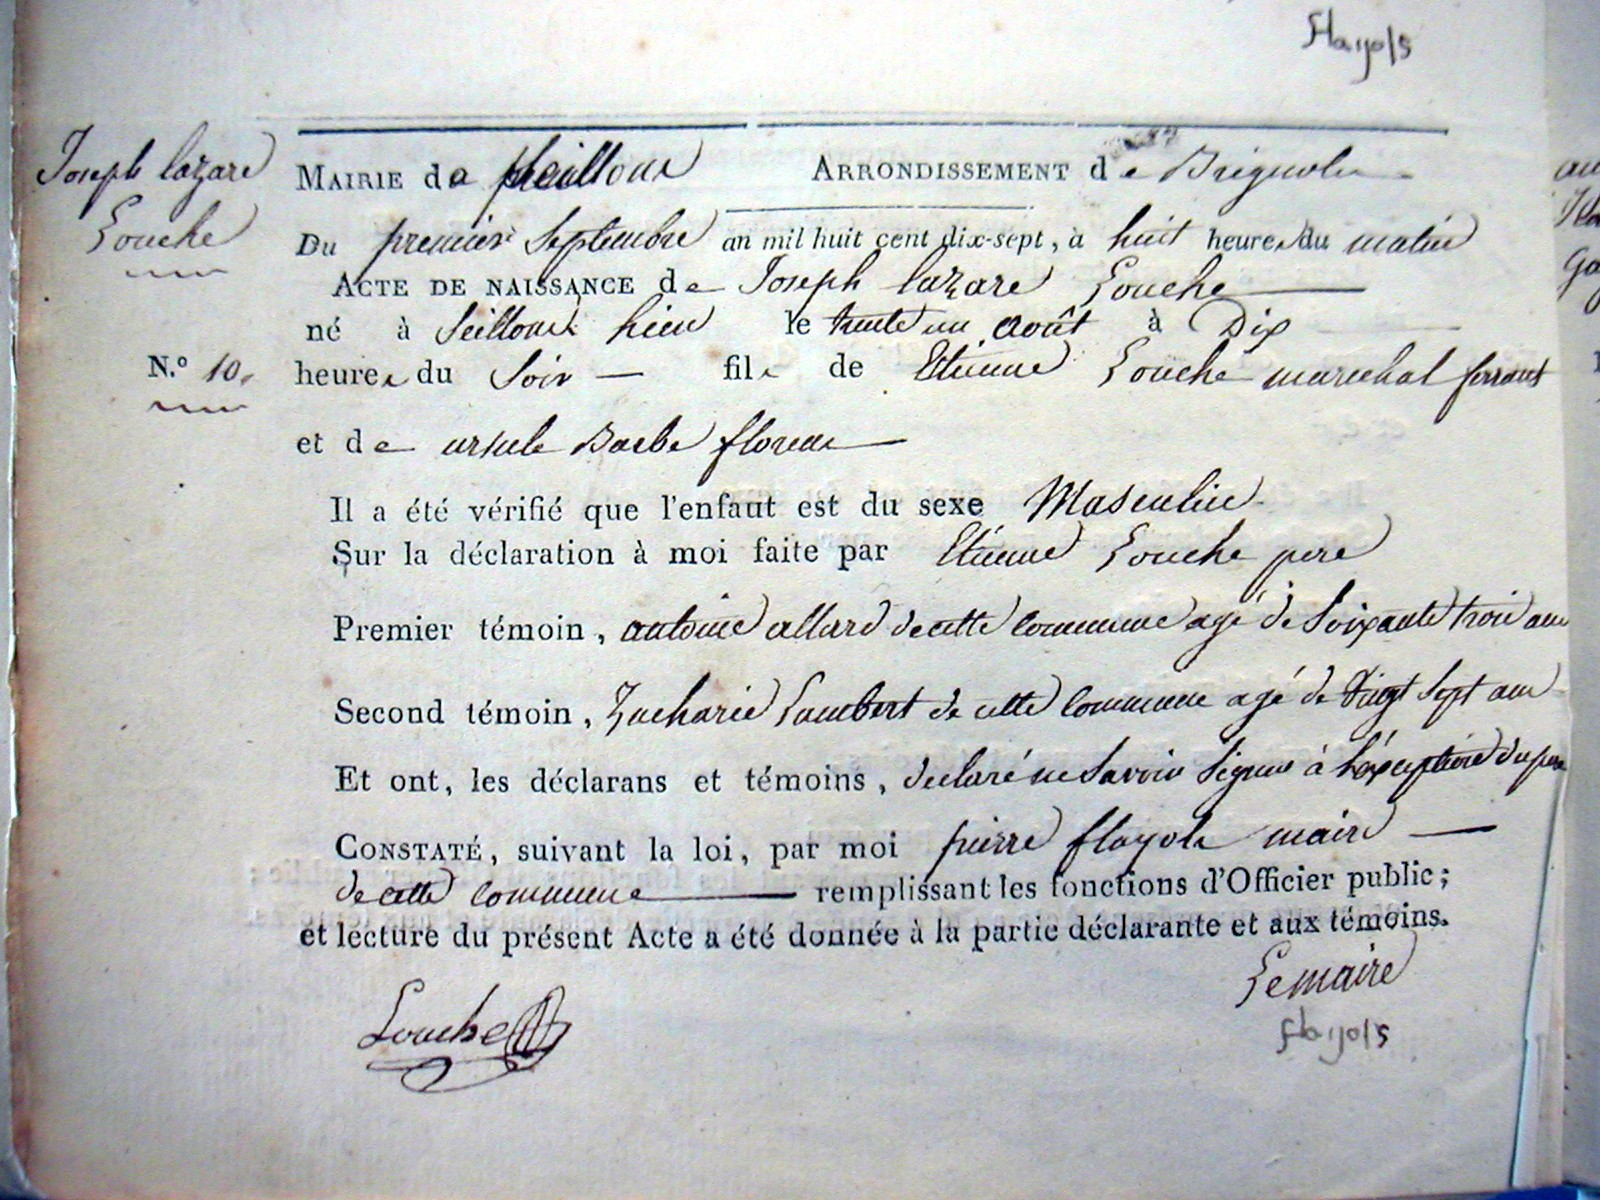 flayols
Joseph lazare
Louche
N.º 10.
MAIRIE de Seillons ARRONDISSEMENT de Brignoles
Du premier Septembre an mil huit cent dix-sept, à huit heures du matin
ACTE DE NAISSANCE de Joseph lazare Louche
né à Seillons hier le trente un août à Dix
heures du Soir fils de Etienne Louche marechal ferrant
et de ursule Barbe florens
Il a été vérifié que l'enfant est du sexe Masculin
Sur la déclaration à moi faite par Etienne Louche pere
Premier témoin, antoine allard de cette commune agé de Soixante trois ans
Second témoin, Zacharie Lambert de cette commune agé de Vingt Sept ans
Et ont, les déclarans et témoins, declaré ne Savoir Signer à l'exception du pere
CONSTATÉ, suivant la loi, par moi pierre flayols maire
de cette commune remplissant les fonctions d'Officier public;
et lecture du présent Acte a été donnée à la partie déclarante et aux témoins.
Le maire
Louche
flayols